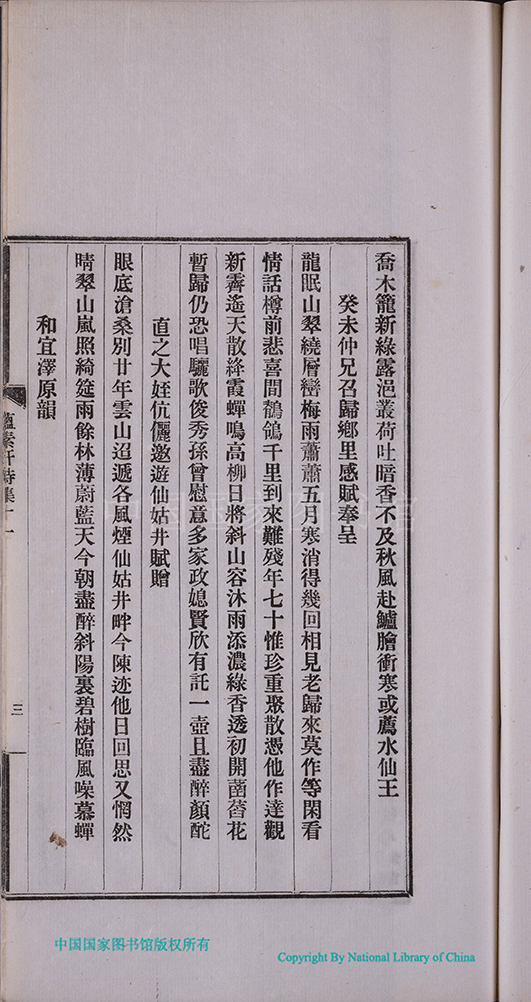 喬木籠新綠露浥叢荷吐暗香不及秋風赴鱸膾衝寒或薦水仙王
癸未仲兄召歸鄉里感賦奉呈
龍眠山翠繞層巒梅雨蕭蕭五月寒消得幾回相見老歸來莫作等閑看
情話樽前悲喜間鶺鴒千里到來難殘年七十惟珍重聚散憑他作達觀
新霽遙天散絳霞蟬鳴高柳日將斜山容沐雨添濃綠香透初開菡萏花
暫歸仍恐唱驪歌俊秀孫曾慰意多家政媳賢欣有託一壺且盡醉顏酡
直之大姪伉儷邀遊仙姑井賦贈
眼底滄桑別廿年雲山迢遞各風煙仙姑井畔今陳迹他日回思又惘然
晴翠山嵐照綺筵雨餘林薄蔚藍天今朝盡醉斜陽裏碧樹臨風噪慕蟬
和宜澤原韻
蘊素軒詩集十一
三
中国国家图书馆版权所有
Copyright By National Library of China